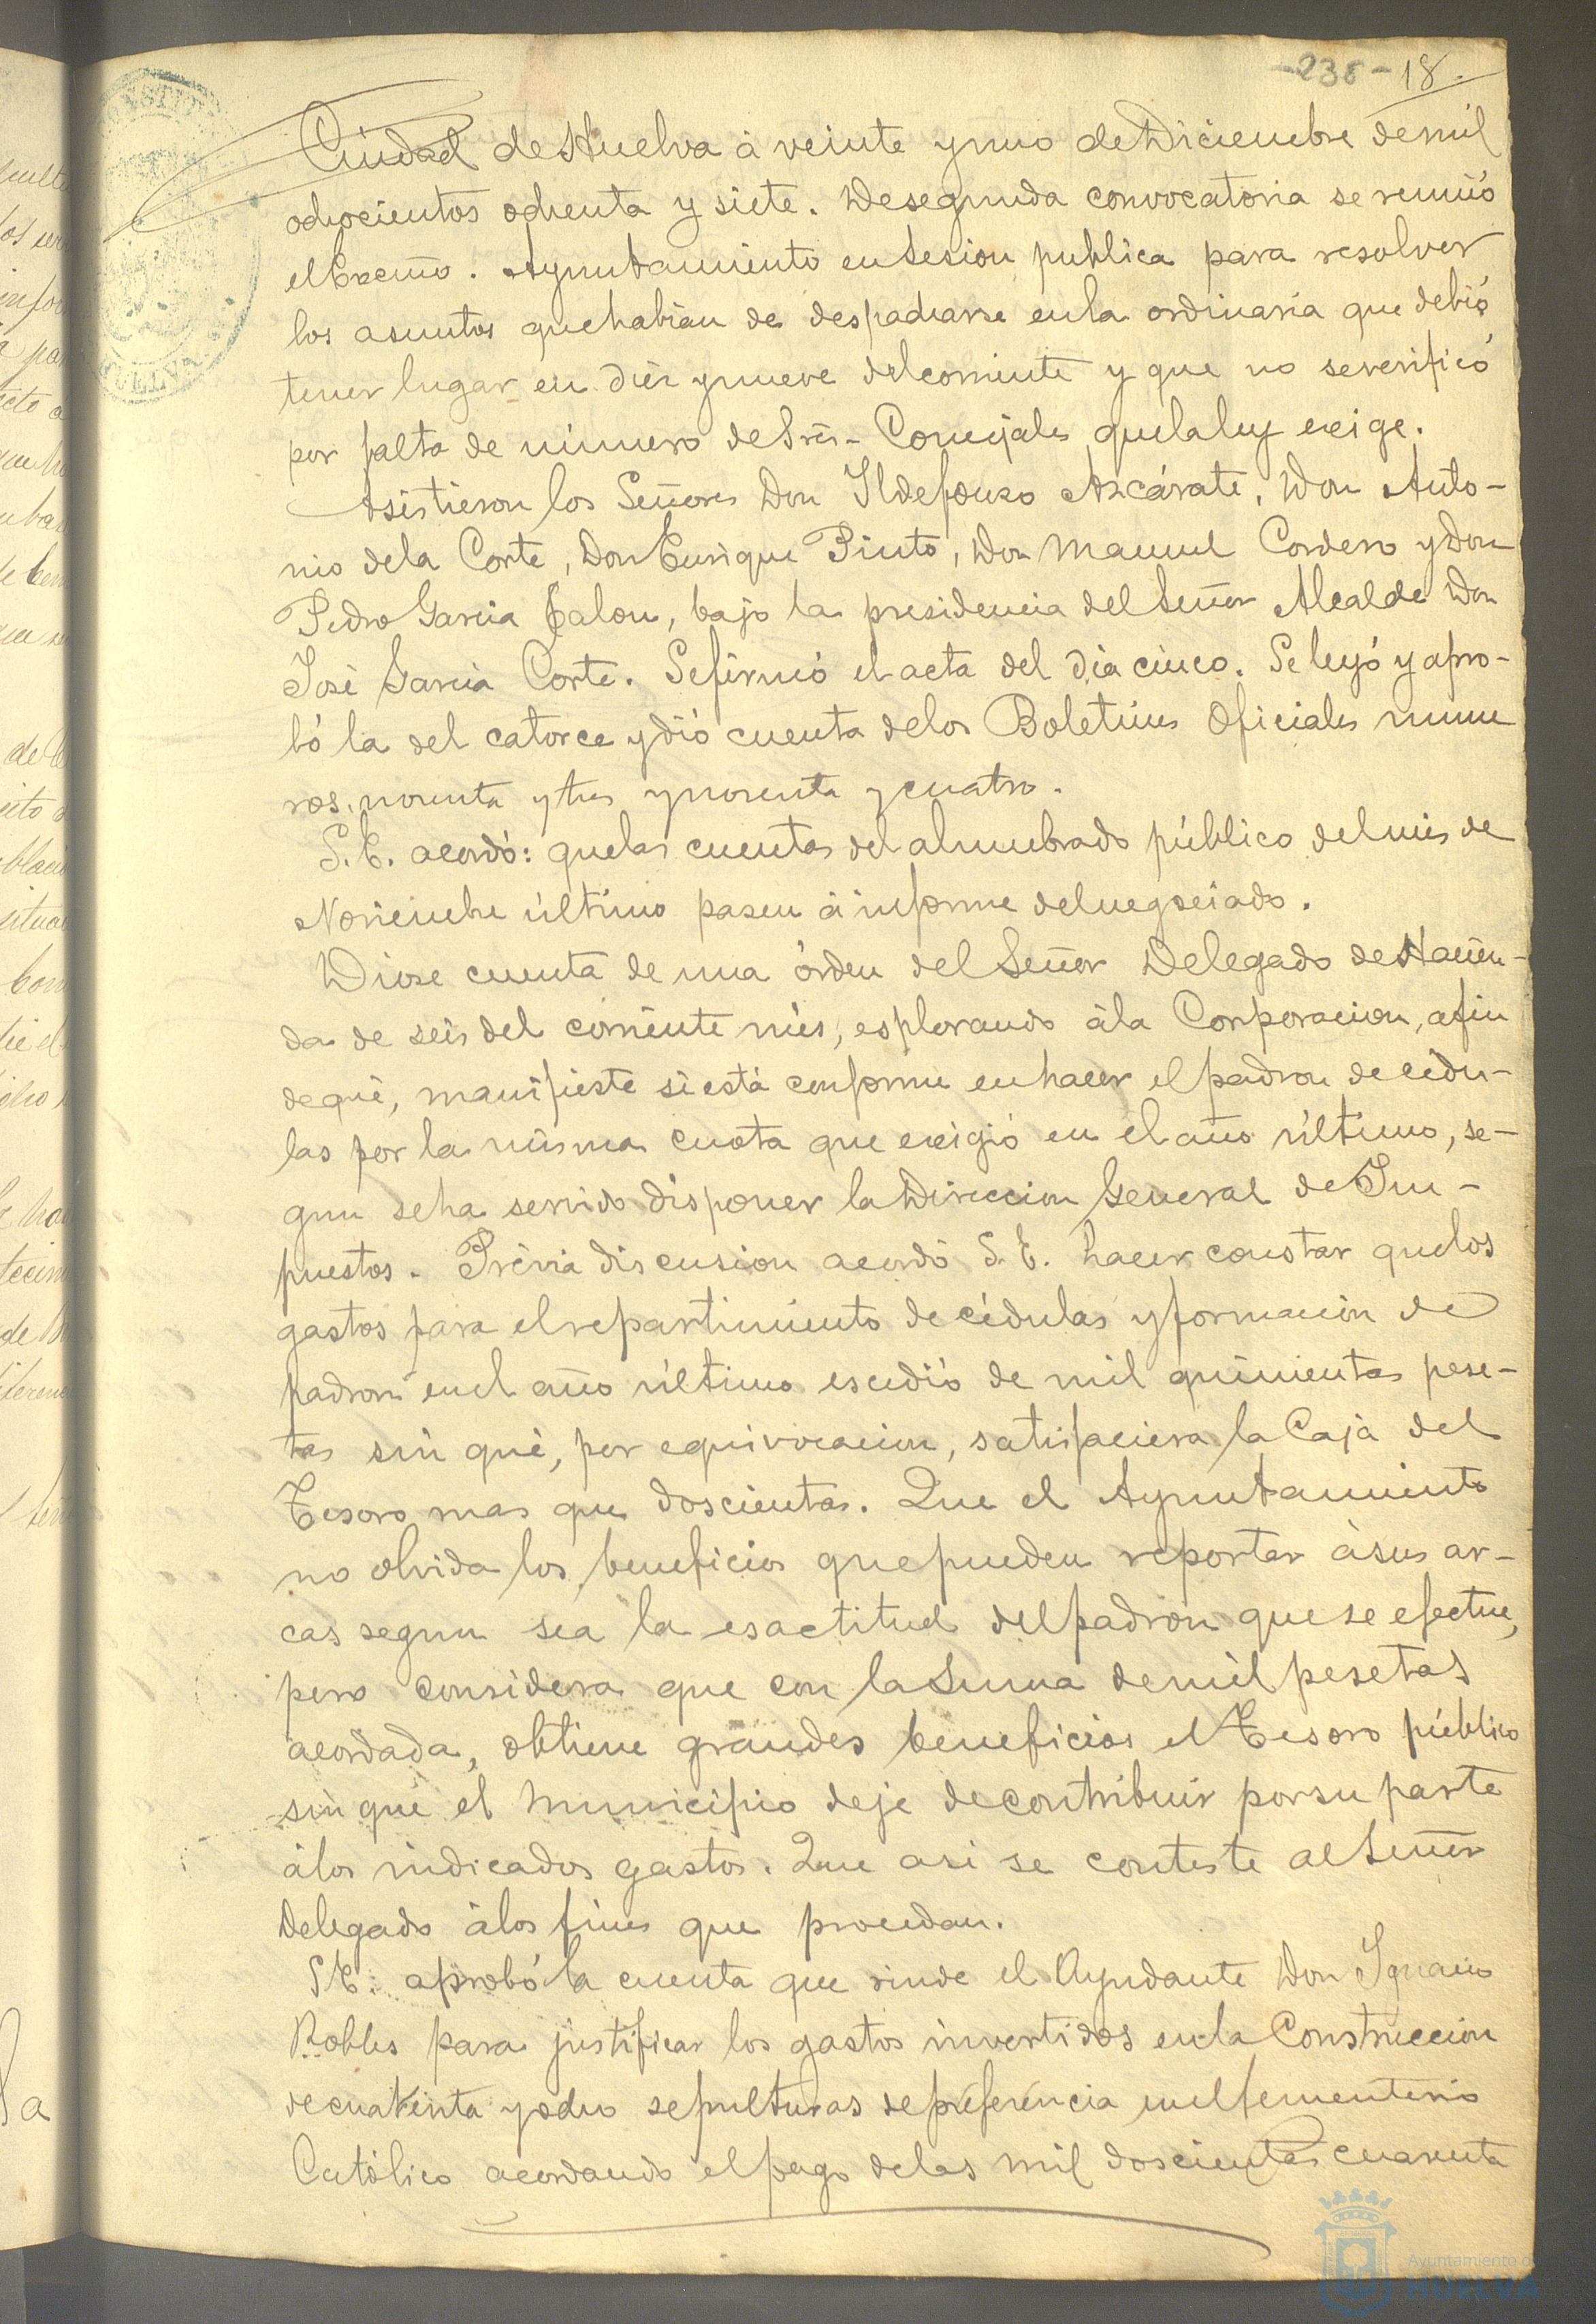 -238- 18.
Ciudad de Huelva á veinte y uno de Diciembre de mil
ochocientos ochenta y siete. De segunda convocatoria se reunió
el Excmo. Ayuntamiento en Sesion publica para resolver
los asuntos que habian de despacharse en la ordinaria que debió
tener lugar en diez y nueve del corriente y que no se verificó
por falta de número de Sres. Concejales que la ley exige.
Asistieron los Señores Don Ildefonso Azcárate, Don Anto-
nio de la Corte, Don Enrique Pinto, Don Manuel Cordero y Don
Pedro Garcia Jalon, bajo la presidencia del Señor Alcalde Don
José Garcia Corte. Se firmó el acta del dia cinco. Se leyó y apro-
bó la del catorce y dió cuenta de los Boletines Oficiales nume
ros noventa y tres y noventa y cuatro.
S. E. acordó: que las cuentas del alumbrado público del mes de
Noviembre último pasen á informe del negociado.
Diose cuenta de una órden del Señor Delegado de Hacien-
da de seis del corriente mes, esplorando á la Corporacion, a fin
de que, manifieste si está conforme en hacer el padron de cédu-
las por la misma cuota que exigió en el año último, se-
gun se ha servido disponer la Direccion General de Im-
puestos. Prévia discusion acordó S. E. hacer constar que los
gastos para el repartimiento de cédulas y formacion de
padron en el año último escedió de mil quinientas pese-
tas sin que, por equivocacion, satisfaciera la Caja del
Tesoro mas que doscientas. Que el Ayuntamiento
no olvida los beneficios que pueden reportar á sus ar-
cas segun sea la esactitud del padron que se efectue,
pero considera que con la Suma de mil pesetas
acordada, obtiene grandes beneficios el Tesoro público
sin que el Municipio deje de contribuir por su parte
á los indicados gastos. Que asi se conteste al Señor
Delegado á los fines que procedan.
S. E. aprobó la cuenta que rinde el Ayudante Don Ignacio
Robles para justificar los gastos invertidos en la Construccion
de cuarenta y ocho sepulturas de preferencia en el Cementerio
Católico acordando el pago de las mil doscientas cuarenta
Ayuntamiento de
HUELVA